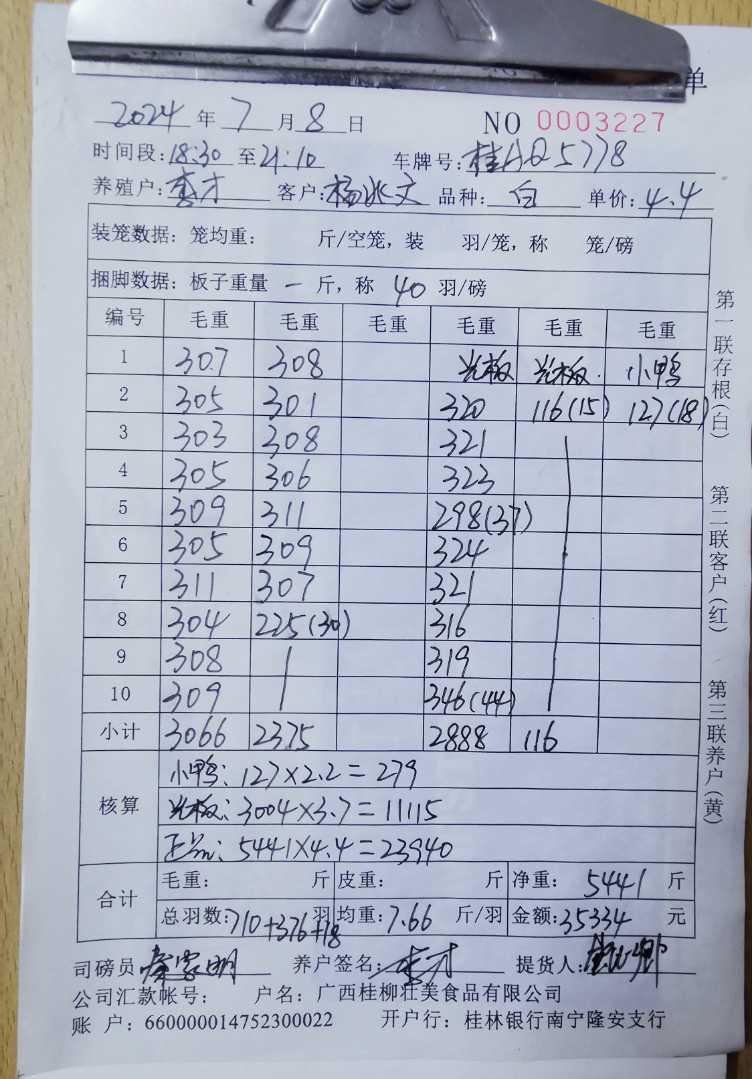 单
2024 年 7 月 8 日 NO 0003227
时间段: 18:30 至 21:10 车牌号: 桂AQ5778
养殖户: 李才 客户: 杨冰文 品种: 白 单价: 4.4
装笼数据: 笼均重: 斤/空笼, 装 羽/笼, 称 笼/磅
捆脚数据: 板子重量 一 斤, 称 40 羽/磅
编号 毛重 毛重 毛重 毛重 毛重 毛重
1 307 308 光板 光板. 小鸭
2 305 301 320 116(15) 127(18)
3 303 308 321
4 305 306 323
5 309 311 298(37)
6 305 309 324
7 311 307 321
8 304 225(30) 316
9 308 319
10 309 346(44)
小计 3066 2375 2888 116
核算
小鸭: 127×2.2=279
光板: 3004×3.7=11115
正品: 5441×4.4=23940
合计
毛重: 斤 皮重: 斤 净重: 5441 斤
总羽数: 710+376+18 羽 均重: 7.66 斤/羽 金额: 35334 元
司磅员: 养户签名: 李才 提货人:
公司汇款帐号: 户名: 广西桂柳壮美食品有限公司
账 户: 660000014752300022 开户行: 桂林银行南宁隆安支行
第一联存根(白)
第二联客户(红)
第三联养户(黄)